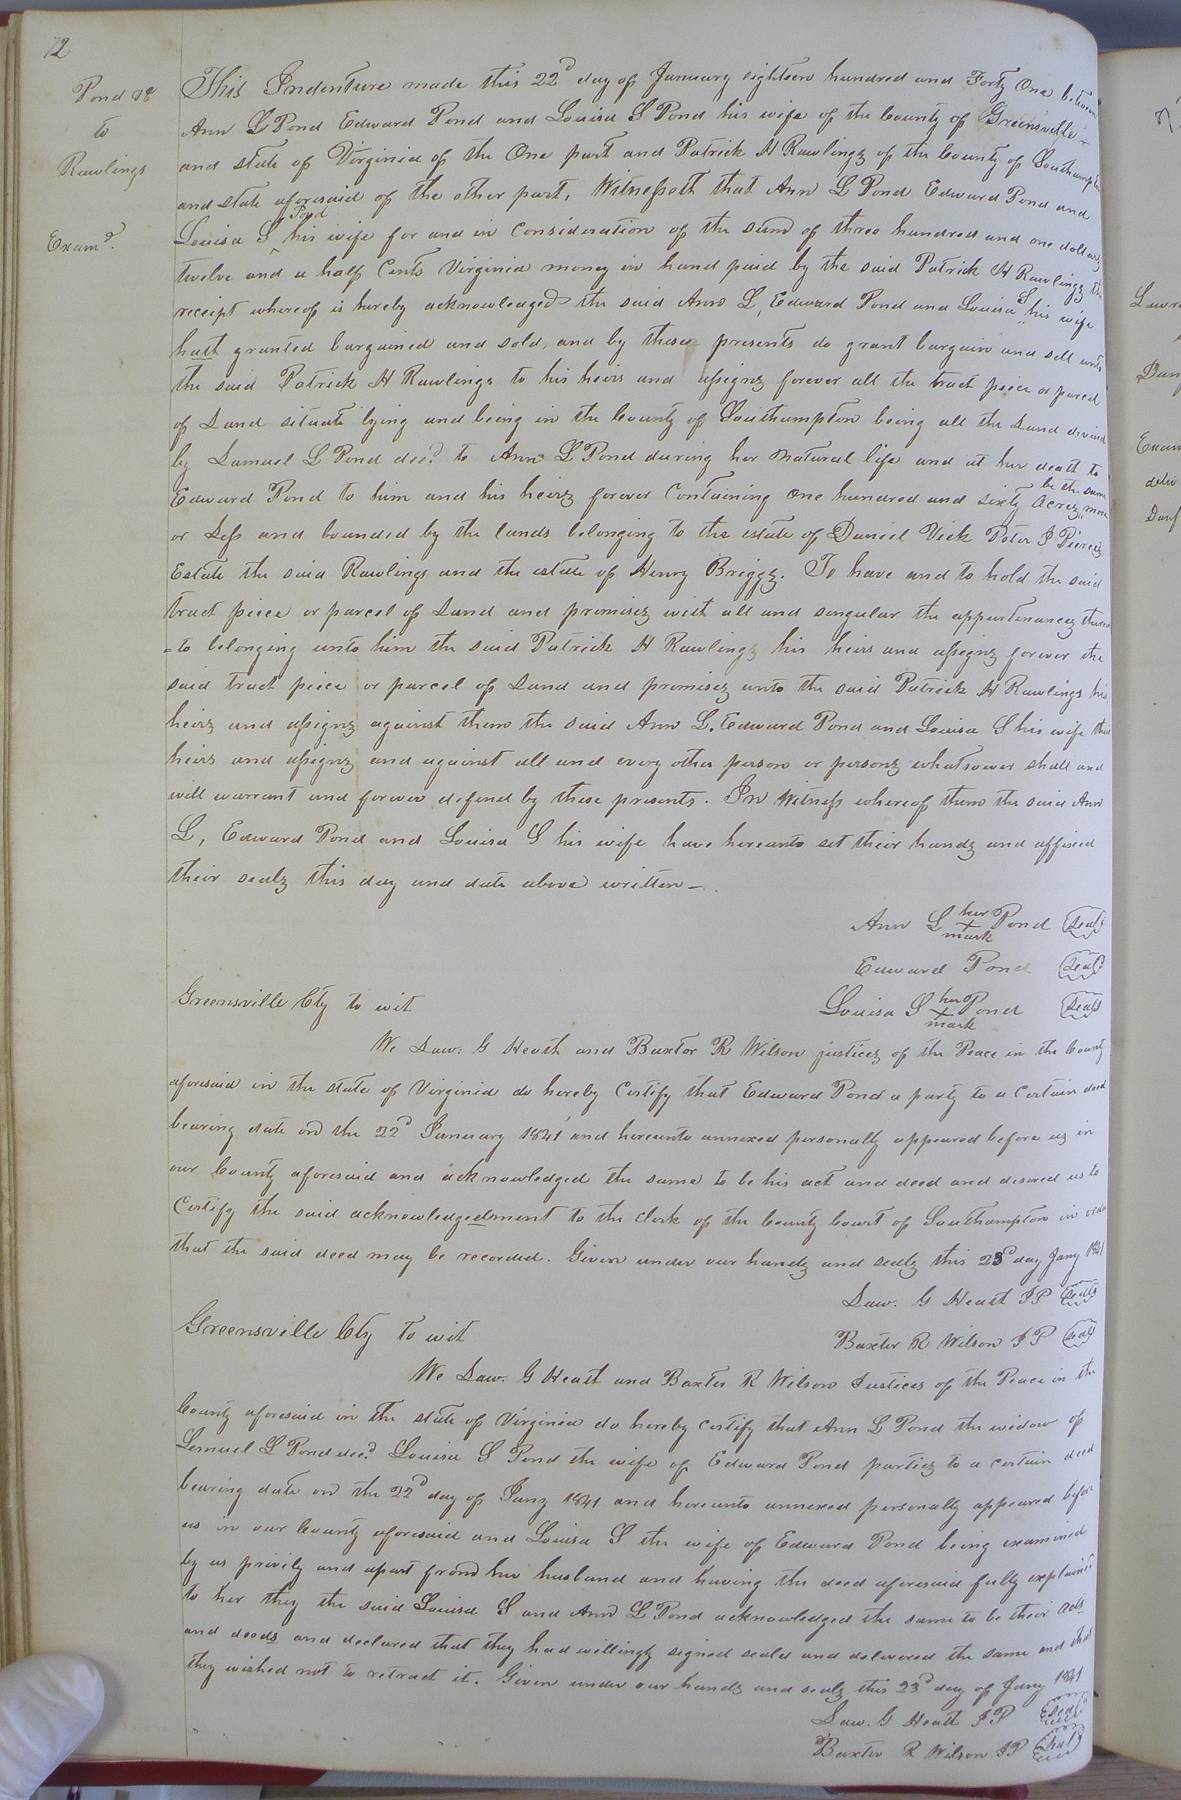 72
Pond &c
to
Rawlings
Examd.
This Indenture made this 22d day of January eighteen hundred and Forty One between
Ann L Pond Edward Pond and Louisa S Pond his wife of the County of Greensville
and state of Virginia of the One part and Patrick H Rawlings of the County of Southampton
and state aforesaid of the other part, Witnesseth that Ann L Pond Edward Pond and
Louisa S Pond his wife for and in Consideration of the sum of three hundred and one dollars
twelve and a half Cents Virginia money in hand paid by the said Patrick H Rawlings the
receipt whereof is hereby acknowledged the said Ann L, Edward Pond and Louisa S his wife
hath granted bargained and sold, and by these presents do grant bargain and sell unto
the said Patrick H Rawlings to his heirs and assigns forever all the tract piece or parcel
of Land situate lying and being in the County of Southampton being all the Land devised
by Lamuel L Pond decd. to Ann L Pond during her natural life and at her death to
Edward Pond to him and his heirs forever Containing One hundred and sixty Acres be the same more
or Less and bounded by the lands belonging to the estate of Daniel Vick Peter J Pierces
Estate the said Rawlings and the estate of Henry Briggs. To have and to hold the said
tract piece or parcel of Land and promises with all and singular the appurtenances there
=to belonging unto him the said Patrick H Rawlings his heirs and assigns forever the
said tract piece or parcel of Land and promises unto the said Patrick H Rawlings his
heirs and assigns against them the said Ann L. Edward Pond and Louisa S his wife their
heirs and assigns and against all and every other person or persons whatsoever shall and
will warrant and forever defend by these presents. In Witness whereof them the said Ann
L, Edward Pond and Louisa S his wife have hereunto set their hands and affixed
their seals this day and date above written—.
Ann L her + mark Pond (Seal)
Edward Pond (Seal)
Greensville Cty to wit
Louisa S her + mark Pond (Seal)
We Law: G Heath and Baxter R Wilson justices of the Peace in the County
aforesaid in the state of Virginia do hereby Certify that Edward Pond a party to a Certain deed
bearing date on the 22d January 1841 and hereunto annexed personally appeared before us in
our County aforesaid and acknowledged the same to be his act and deed and desired us to
Certify the said acknowledgedment to the Clerk of the County Court of Southampton in order
that the said deed may be recorded. Given under our hands and seals this 23d day Jany 1841
Law. G Heath JP (Seal)
Greensville Cty To wit
Baxter R Wilson JP (Seal)
We Law. G Heath and Baxter R Wilson Justices of the Peace in the
County aforesaid in the state of Virginia do hereby certify that Ann L Pond the widow of
Lemuel L Pond decd. Louisa S Pond the wife of Edward Pond parties to a certain deed
bearing date on the 22d day of Jany 1841 and hereunto annexed personally appeared before
us in our County aforesaid and Louisa S the wife of Edward Pond being examined
by us privily and apart from her husband and having the deed aforesaid fully explained
to her they the said Louisa S and Ann L Pond acknowledged the same to be their acts
and deeds and declared that they had willingly signed seald and delivered the same and that
they wished not to retract it. Given under our hands and seals this 23d day of Jany 1841
Law. G Heath JP (Seal)
Baxter R Wilson JP (Seal)